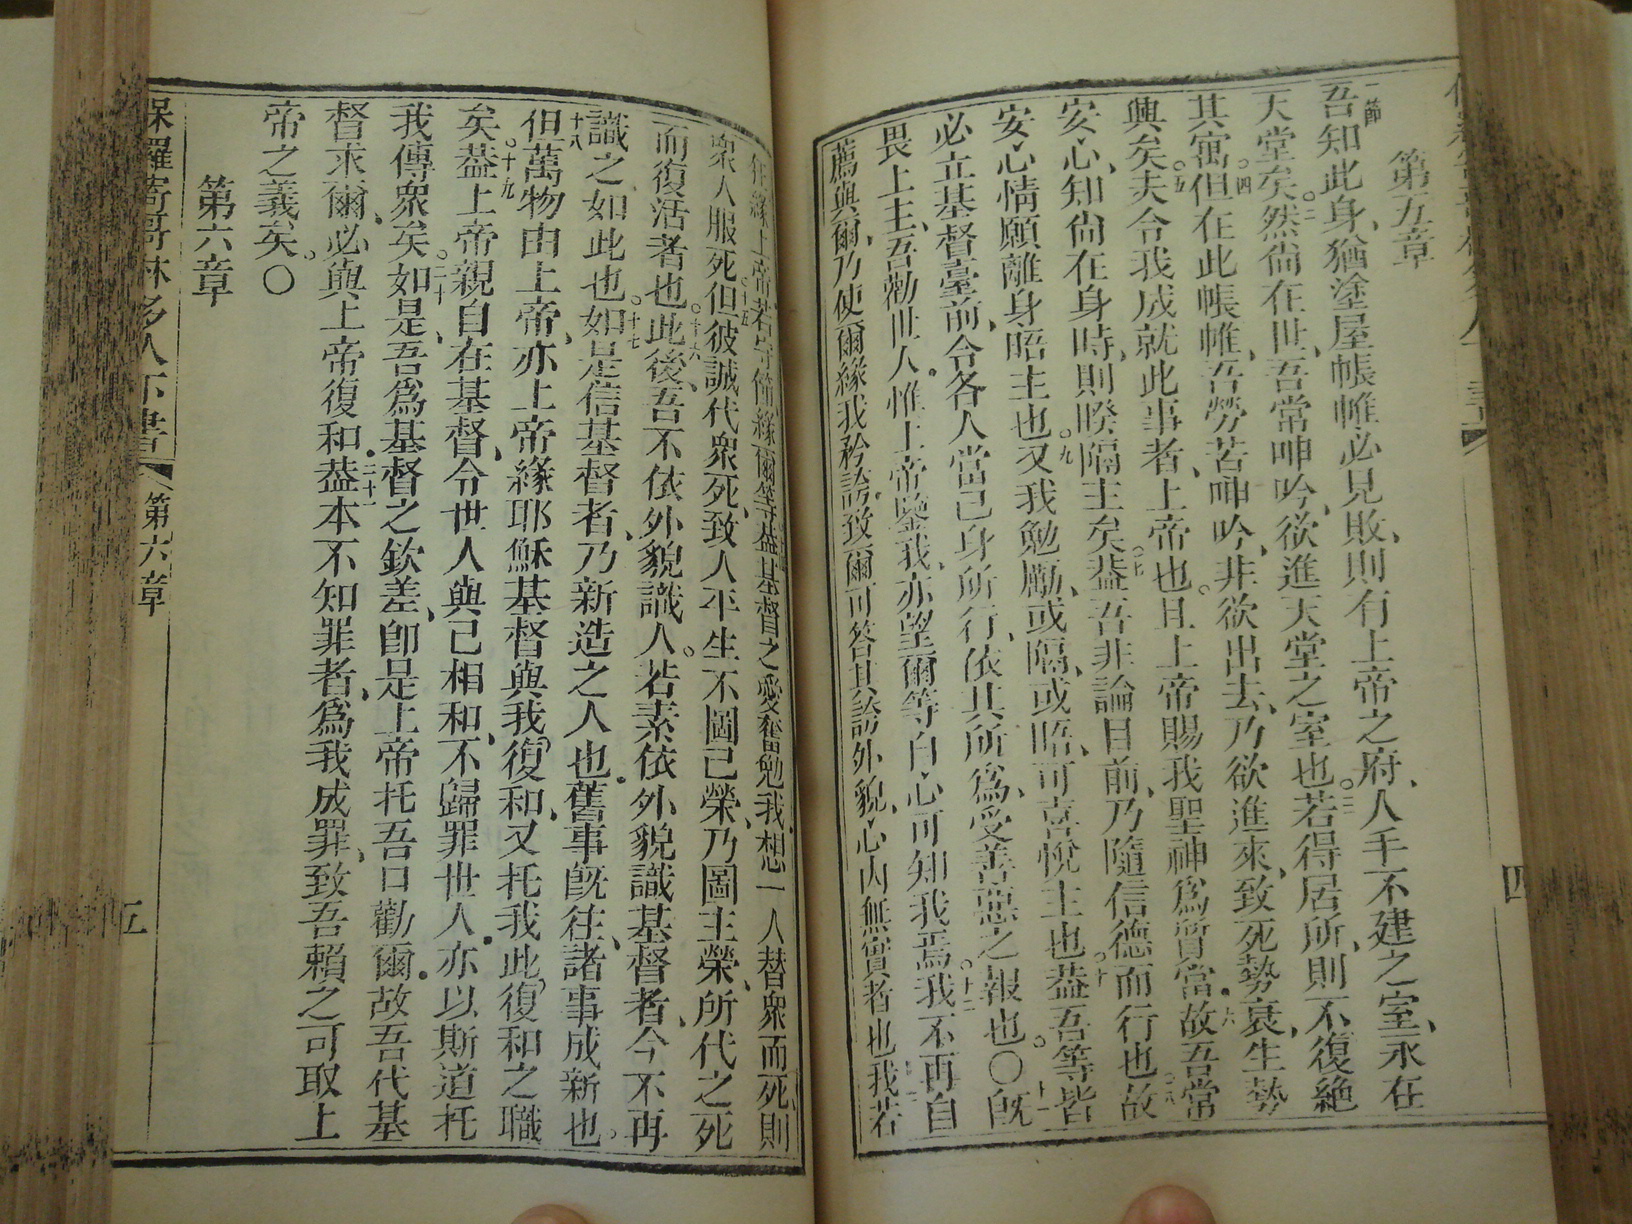 第五章
一節
吾知此身、猶塗屋帳帷必見敗、則有上帝之府、人手不建之室、永在
天堂矣。二然尙在世、吾常呻吟、欲進天堂之室也。三若得居所、則不復絶
其寓。四但在此帳帷、吾勞苦呻吟、非欲出去、乃欲進來、致死勢衰、生勢
興矣。五夫令我成就此事者、上帝也。且上帝賜我聖神爲質當。六故吾常
安心、知尙在身時、則睽隔主矣。七葢吾非論目前、乃隨信德而行也。八故
安心情願離身晤主也。九又我勉勵、或隔、或晤、可喜悅主也。十葢吾等皆
必立基督臺前、令各人當己身所行、依其所爲、受善惡之報也。〇十一旣
畏上主、吾勸世人。惟上帝鑒我、亦望爾等自心可知我焉。十二我不再自
薦與爾、乃使爾緣我矜誇、致爾可答其誇外貌、心內無實者也我若
緣上帝、若守節緣爾等葢基督之愛奮勉我、想一人替衆而死、則
衆人服死。十五但彼誠代衆死、致人平生不圖己榮、乃圖主榮、所代之死
而復活者也。十六此後、吾不依外貌識人。若素依外貌識基督者、今不再
識之如此也。十七如是信基督者、乃新造之人也。舊事旣往、諸事成新也。
十八但萬物由上帝、亦上帝緣耶穌基督與我復和、又托我此復和之職
矣。十九葢上帝親自在基督、令世人與己相和、不歸罪世人。亦以斯道托
我傳衆矣。二十如是、吾爲基督之欽差、卽是上帝托吾口勸爾。故吾代基
督求爾、必與上帝復和。二十一葢本不知罪者、爲我成罪、致吾賴之可取上
帝之義矣。〇
第六章
保羅寄哥林多人下書
第六章
五
四